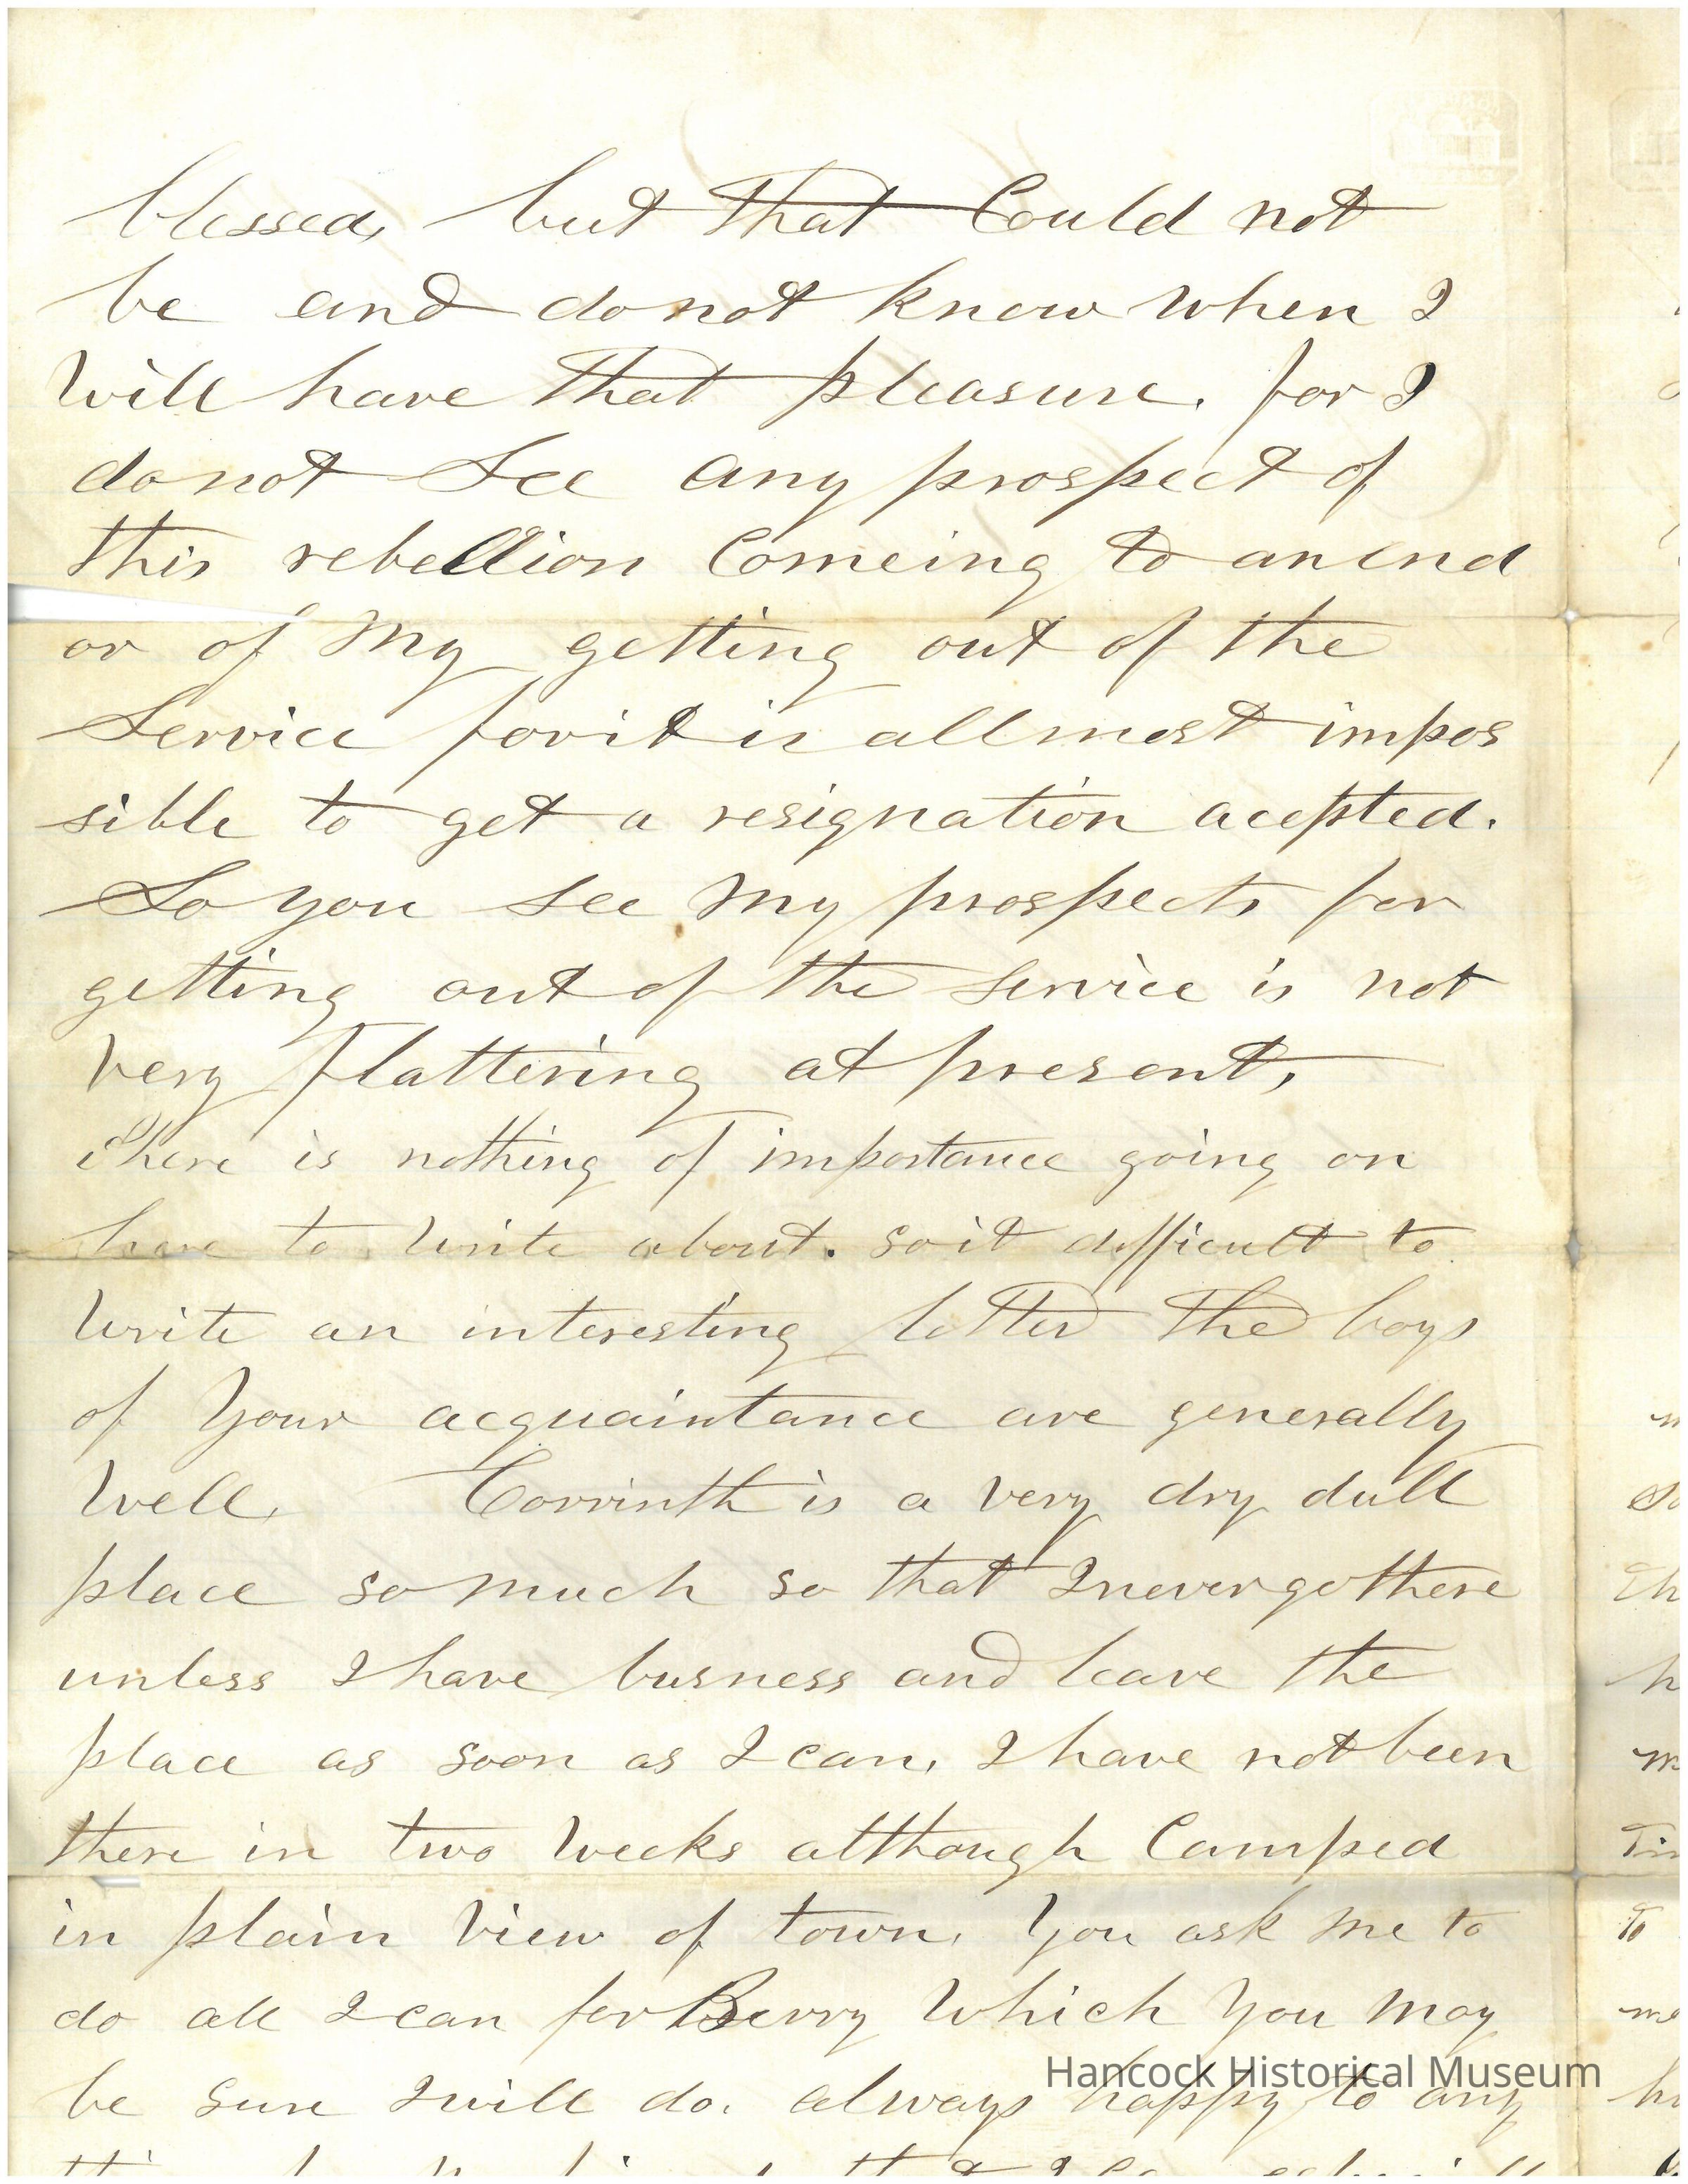 blessed, but that Could not
be and donot know when I
Will have that pleasure. for I
donot See any prospect of
this rebellion Comeing to an end
or of My getting out of the
Service for it is allmost impos
sible to get a resignation acepted.
So you see My prospects for
getting out of the Service is not
Very flattering at present,
there is nothing of importance going on
here to Write about. so it difficult to
Write an interesting letter The boys
of Your acquaintance are generally
Well, Corrinth is a very dry dull
place so much so that I never go there
unless I have busness and leave the
place as soon as I can, I have not been
there in two Weeks although Camped
in plain View of town, You ask me to
do all I can for Berry Which You May
be sure I will do. always happy to any
Hancock Historical Museum